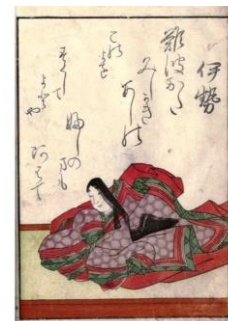 伊勢
難波かた
みしかき
あし能
婦しの
まも
阿はて
こ能
よを
すくして
よとや